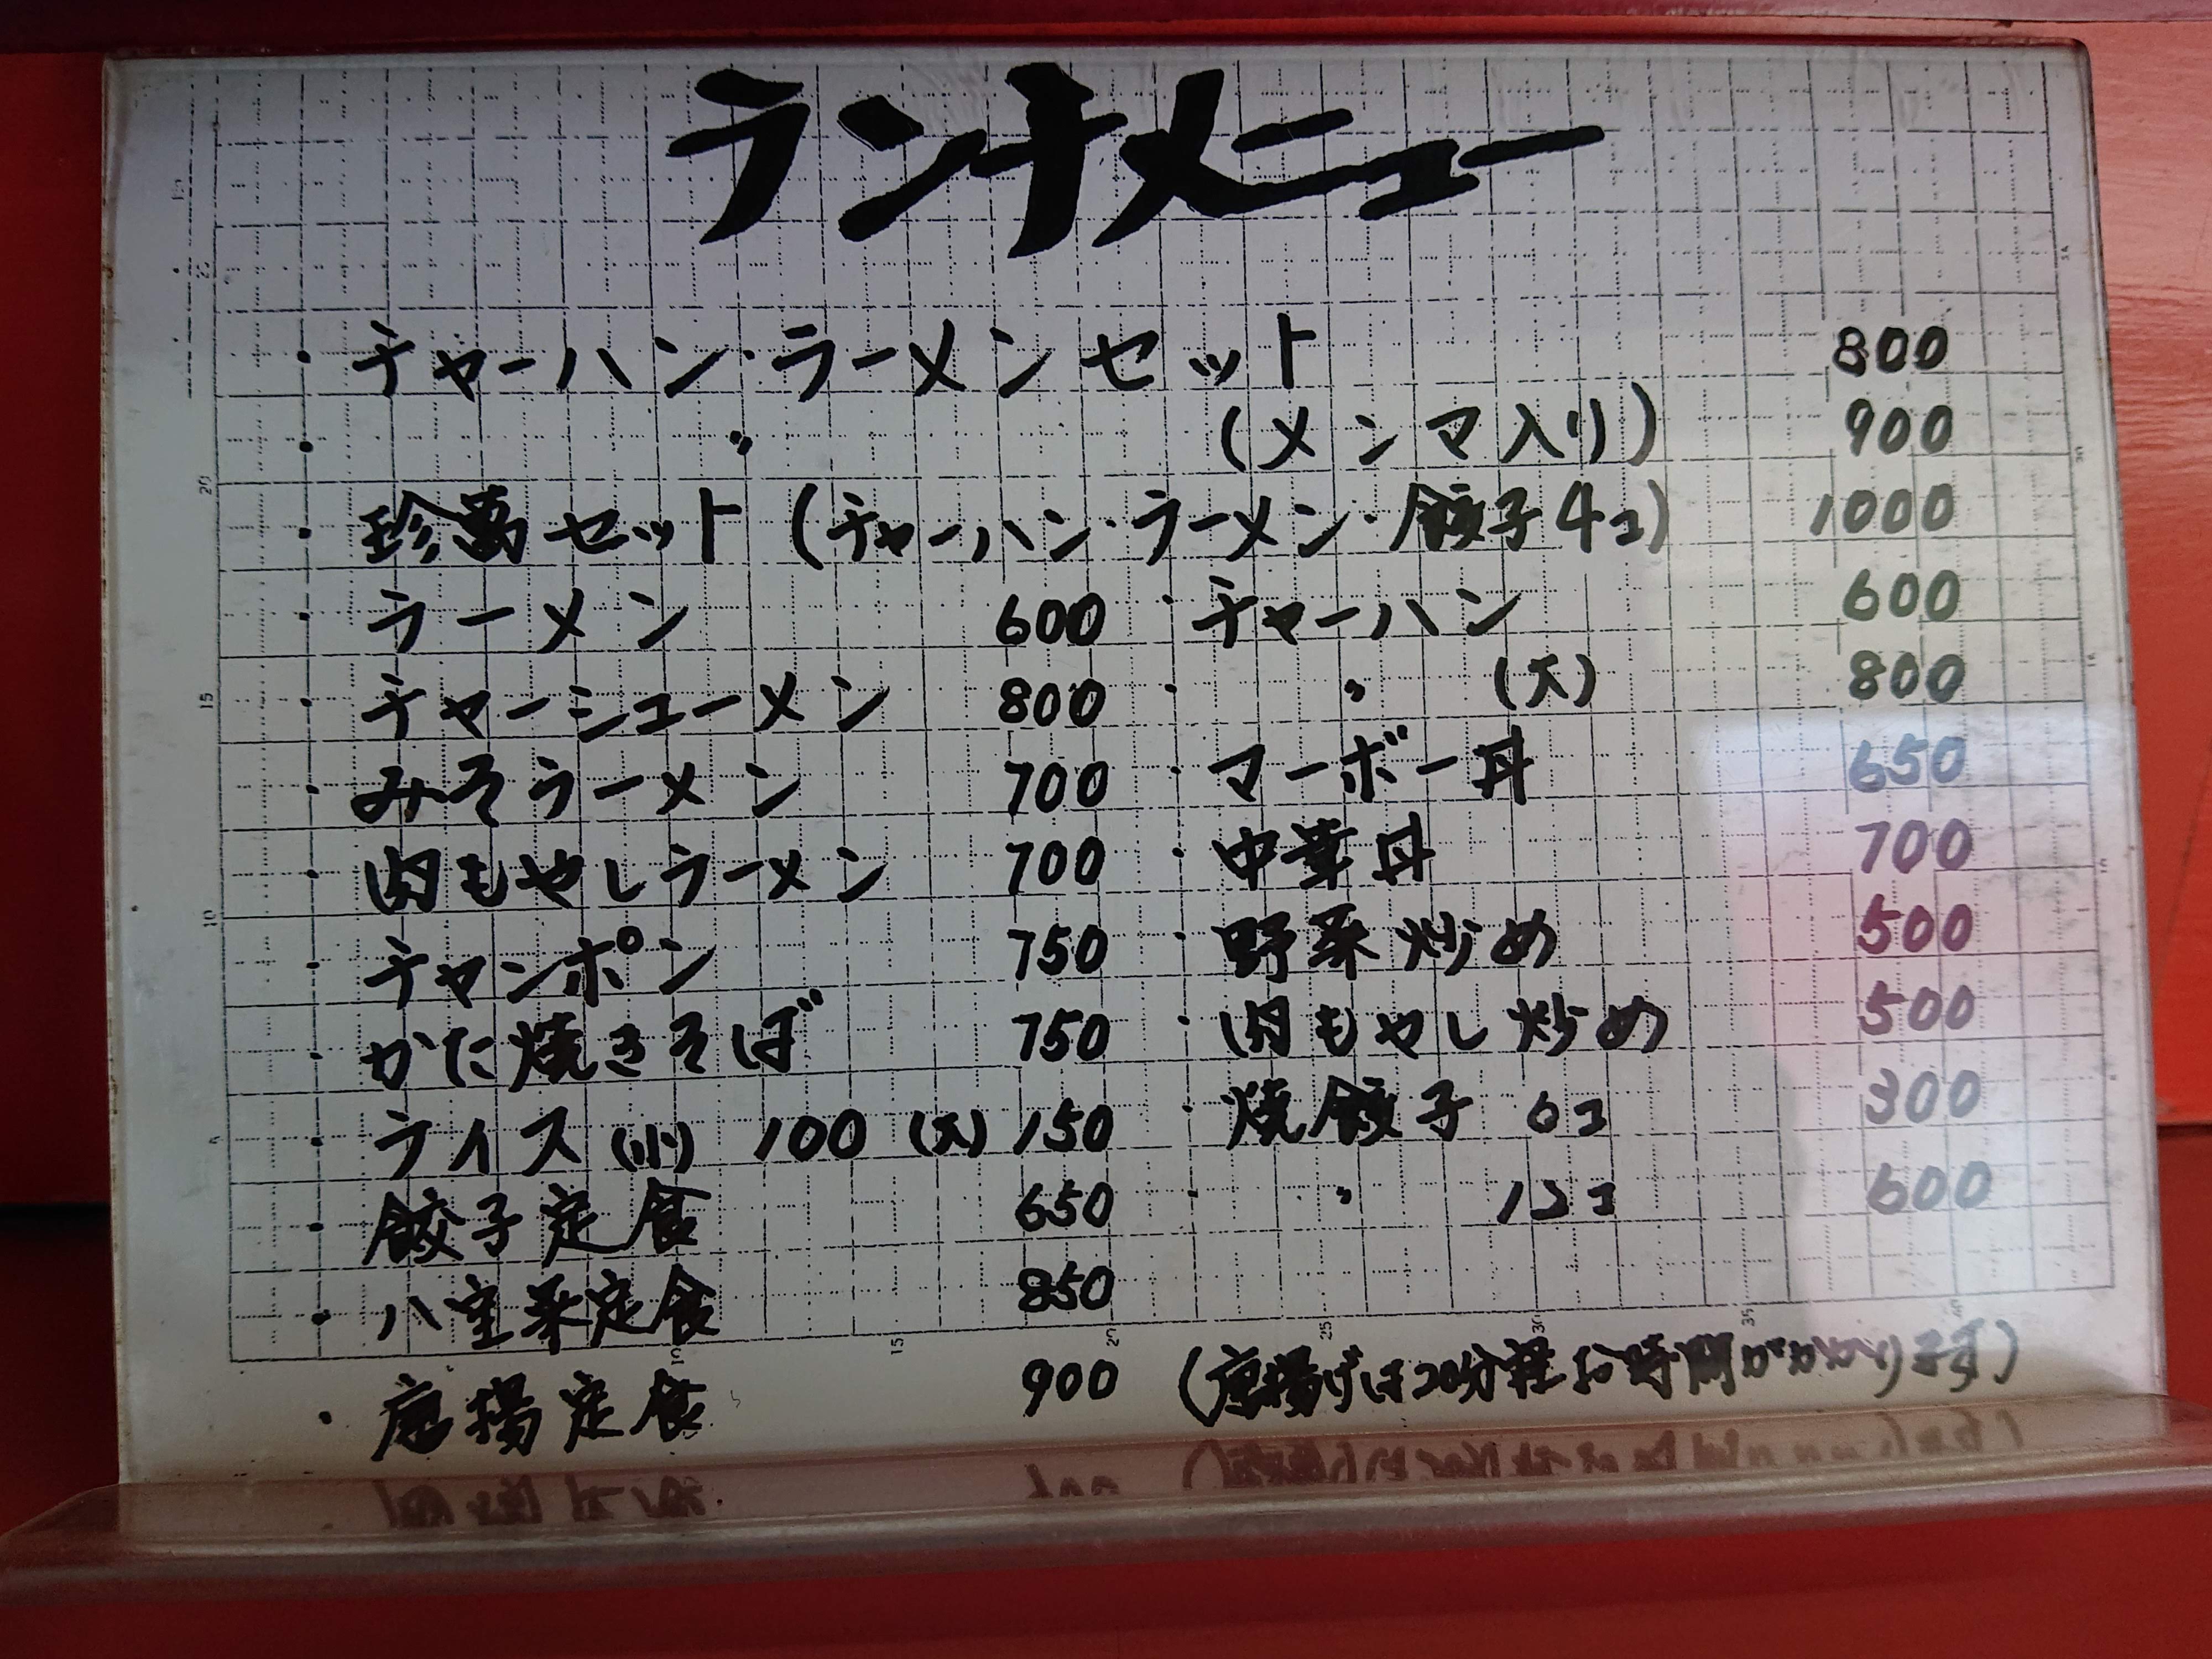 ランチメニュー
・チャーハン・ラーメンセット 800
・ 〃 (メンマ入り) 900
・珍萬セット (チャーハン・ラーメン・餃子4コ) 1000
・ラーメン 600 ・チャーハン 600
・チャーシューメン 800 ・ 〃 (大) 800
・みそラーメン 700 ・マーボー丼 650
・肉もやしラーメン 700 ・中華丼 700
・チャンポン 750 ・野菜炒め 500
・かた焼きそば 750 ・肉もやし炒め 500
・ライス (小) 100 (大) 150 ・焼餃子 6コ 300
・餃子定食 650 ・ 〃 12コ 600
・八宝菜定食 850
・唐揚定食 900 (唐揚げは20分程お時間がかかります)